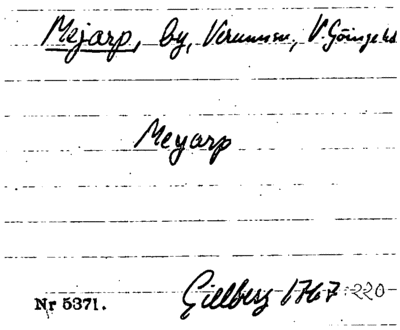 Mejarp, by, Verumsn, V. Göinge hd
Meyarp
Nr 5371. Gillberg 1767:220